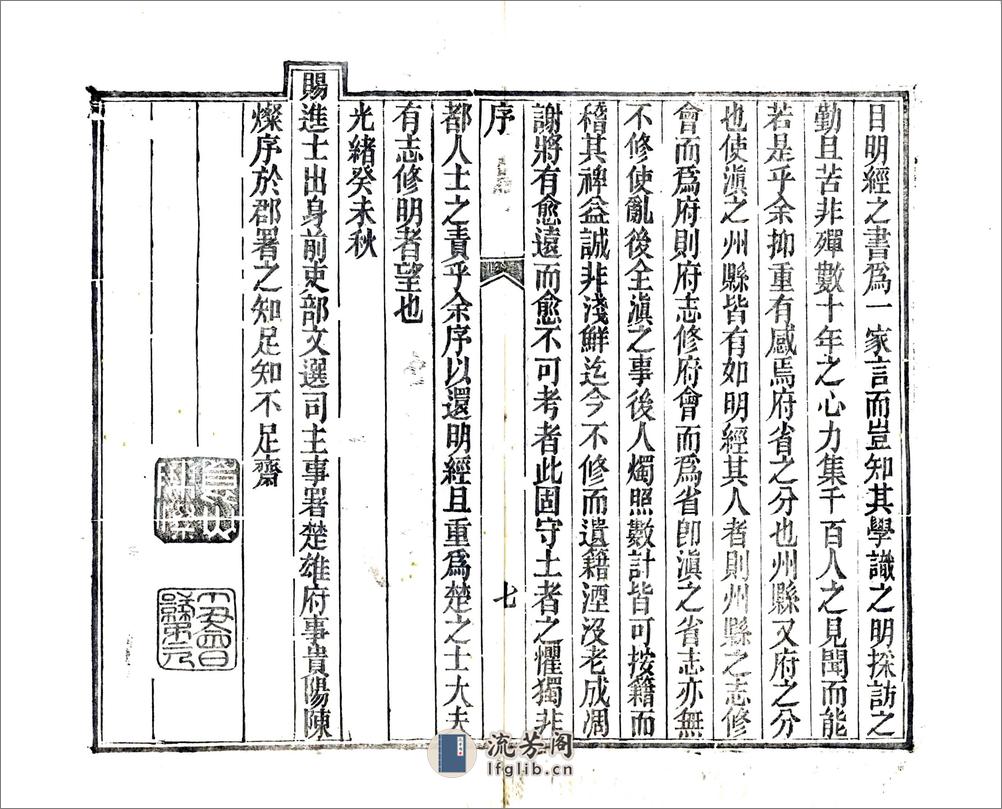 目明經之書爲一家言而豈知其學識之明採訪之
勤且苦非殫數十年之心力集千百人之見聞而能
若是乎余抑重有感焉府省之分也州縣又府之分
也使滇之州縣皆有如明經其人者則州縣之志修
會而爲府則府志修府會而爲省卽滇之省志亦無
不修使亂後全滇之事後人燭照數計皆可按籍而
稽其裨益誠非淺鮮迄今不修而遺籍湮没老成凋
謝將有愈遠而愈不可考者此固守土者之懼獨非
序
七
都人士之責乎余序以還明經且重爲楚之士大夫
有志修明者望也
光緒癸未秋
賜進士出身前吏部文選司主事署楚雄府事貴陽陳
燦序於郡署之知足知不足齋
流芳阁
lfglib.cn